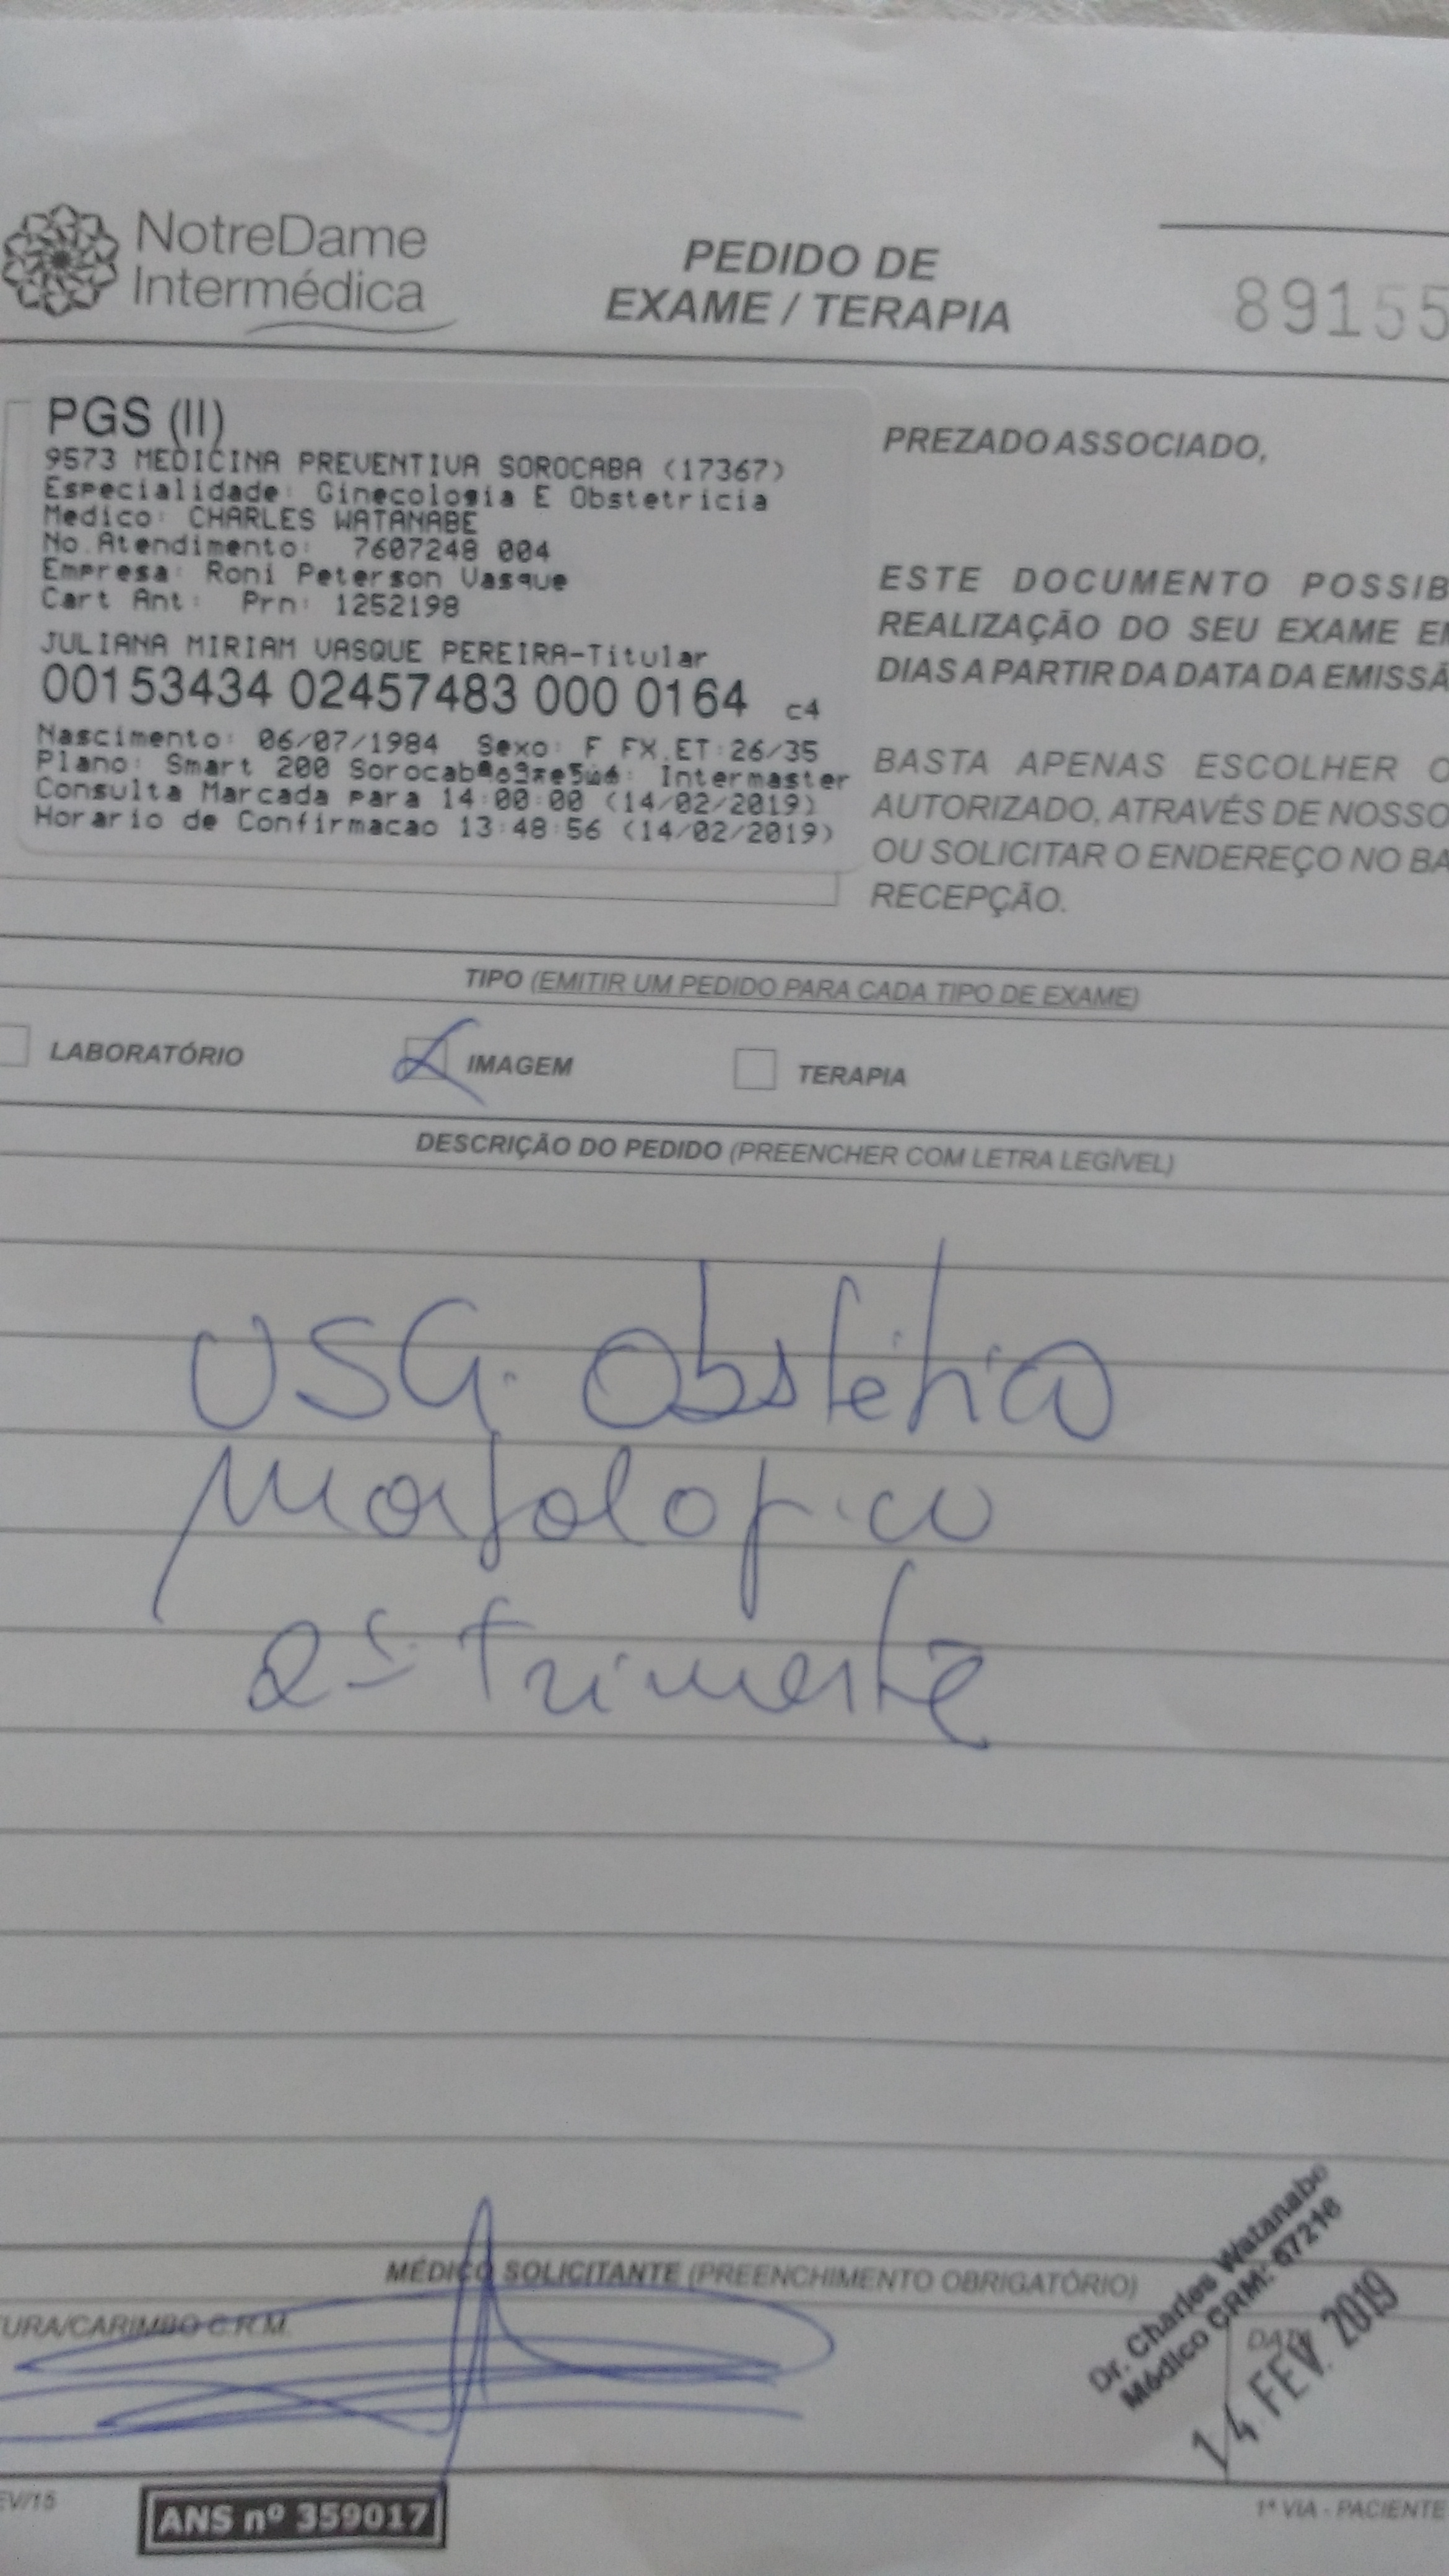 NotreDame
Intermédica
PEDIDO DE
EXAME / TERAPIA
89155
PGS (II)
9573 MEDICINA PREVENTIVA SOROCABA (17367)
Especialidade: Ginecologia E Obstetricia
Medico: CHARLES WATANABE
No.Atendimento: 7607248 004
Empresa: Roni Peterson Vasque
Cart Ant: Prn: 1252198
JULIANA MIRIAM VASQUE PEREIRA-Titular
00153434 02457483 000 0164 c4
Nascimento: 06/07/1984 Sexo: F FX.ET:26/35
Plano: Smart 200 Intermaster
Consulta Marcada para 14:00:00 (14/02/2019)
Horario de Confirmacao 13:48:56 (14/02/2019)
PREZADO ASSOCIADO,
ESTE DOCUMENTO POSSIB
REALIZAÇÃO DO SEU EXAME E
DIAS A PARTIR DA DATA DA EMISSÃ
BASTA APENAS ESCOLHER O
AUTORIZADO, ATRAVÉS DE NOSSO
OU SOLICITAR O ENDEREÇO NO BA
RECEPÇÃO.
TIPO (EMITIR UM PEDIDO PARA CADA TIPO DE EXAME)
LABORATÓRIO IMAGEM TERAPIA
DESCRIÇÃO DO PEDIDO (PREENCHER COM LETRA LEGÍVEL)
USG. Obstétrico
Morfologico
2º Trimestre
MÉDICO SOLICITANTE (PREENCHIMENTO OBRIGATÓRIO)
TURA/CARIMBO C.R.M.
Dr. Charles Watanabe
Médico CRM: 67216
DATA
14 FEV. 2019
EV/15
ANS nº 359017
1ª VIA - PACIENTE